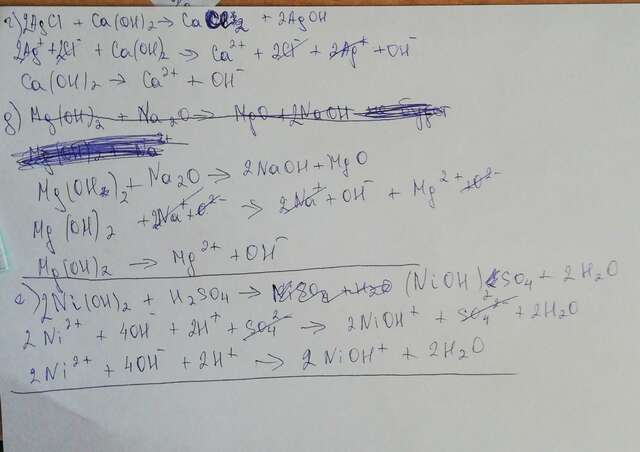 г) 2AgCl + Ca(OH)2 → CaCl2 + 2AgOH
2Ag⁺ + 2Cl⁻ + Ca(OH)2 → Ca²⁺ + 2Cl⁻ + 2Ag⁺ + OH⁻
Ca(OH)2 → Ca²⁺ + OH⁻
д) Mg(OH)2 + Na2O → MgO + 2NaOH не будет
Mg(OH)2 + Na
Mg(OH)2 + Na2O → 2NaOH + MgO
Mg(OH)2 + 2Na⁺ + O²⁻ → 2Na⁺ + OH⁻ + Mg²⁺ + O²⁻
Mg(OH)2 → Mg²⁺ + OH⁻
е) 2Ni(OH)2 + H2SO4 → NiSO4 + H2O (NiOH)2SO4 + 2H2O
2Ni²⁺ + 4OH⁻ + 2H⁺ + SO4²⁻ → 2NiOH⁺ + SO4²⁻ + 2H2O
2Ni²⁺ + 4OH⁻ + 2H⁺ → 2NiOH⁺ + 2H2O